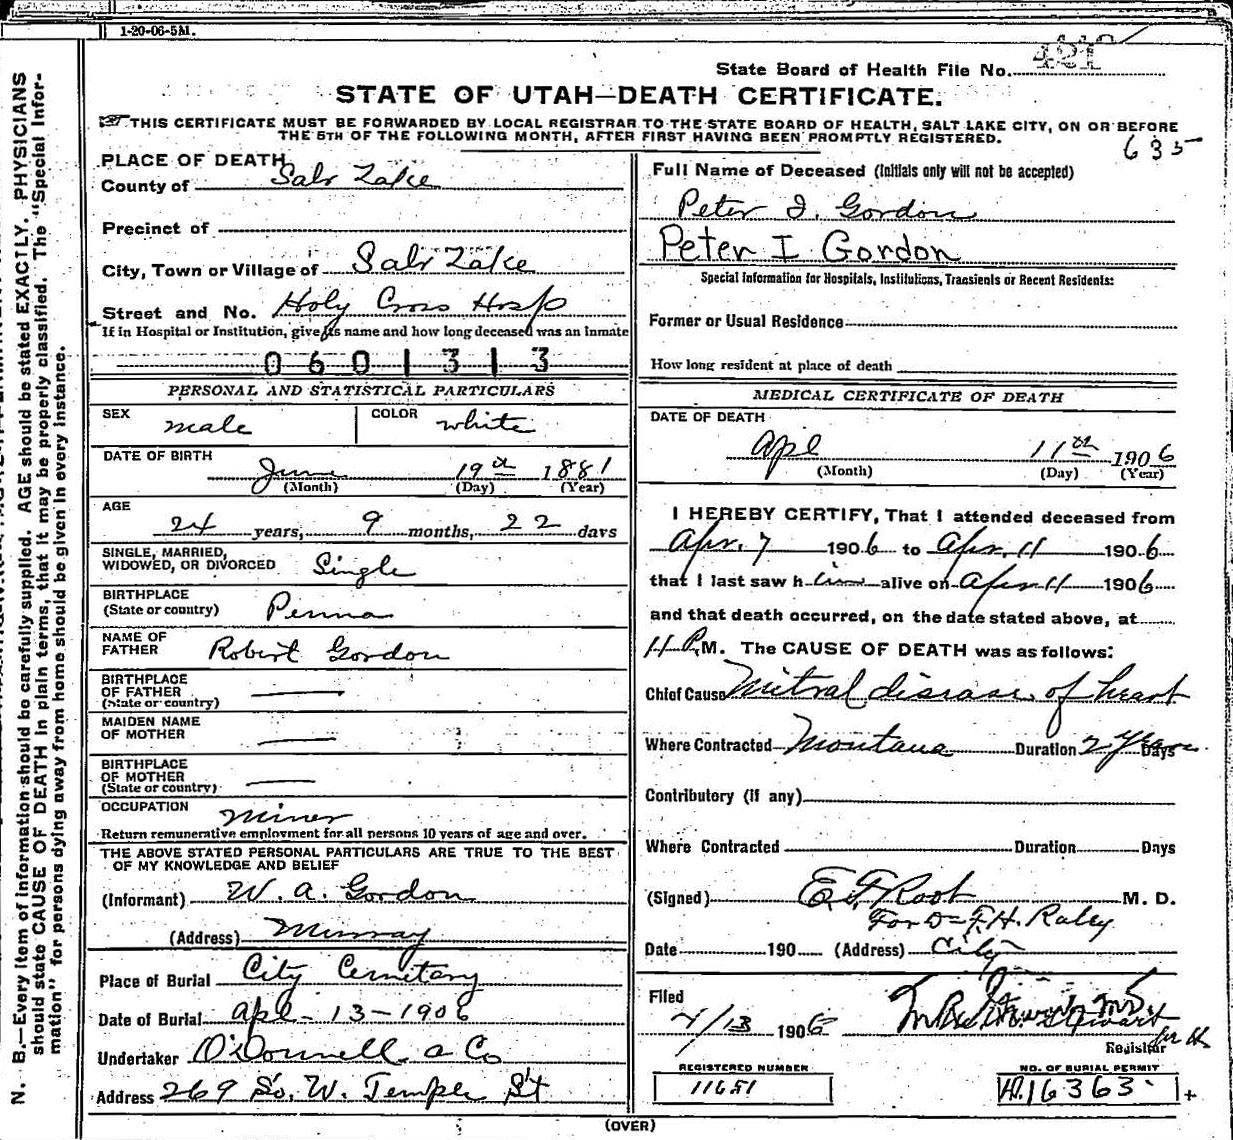 1-20-06-5M.
State Board of Health File No. 421
STATE OF UTAH—DEATH CERTIFICATE.
THIS CERTIFICATE MUST BE FORWARDED BY LOCAL REGISTRAR TO THE STATE BOARD OF HEALTH, SALT LAKE CITY, ON OR BEFORE
THE 5TH OF THE FOLLOWING MONTH, AFTER FIRST HAVING BEEN PROMPTLY REGISTERED.
635
PLACE OF DEATH
County of Salt Lake
Precinct of
City, Town or Village of Salt Lake
Street and No. Holy Cross Hosp
If in Hospital or Institution, give its name and how long deceased was an inmate
0601313
PERSONAL AND STATISTICAL PARTICULARS
SEX male COLOR white
DATE OF BIRTH
June 19th 1881
(Month) (Day) (Year)
AGE
24 years, 9 months, 22 days
SINGLE, MARRIED,
WIDOWED, OR DIVORCED Single
BIRTHPLACE
(State or country) Penna
NAME OF
FATHER Robert Gordon
BIRTHPLACE
OF FATHER
(State or country)
MAIDEN NAME
OF MOTHER
BIRTHPLACE
OF MOTHER
(State or country)
OCCUPATION miner
Return remunerative employment for all persons 10 years of age and over.
THE ABOVE STATED PERSONAL PARTICULARS ARE TRUE TO THE BEST
OF MY KNOWLEDGE AND BELIEF
(Informant) W. A. Gordon
(Address) Murray
Place of Burial City Cemetary
Date of Burial Apl - 13 - 1906
Undertaker O'Donnell & Co
Address 269 So. W. Temple St
Full Name of Deceased (Initials only will not be accepted)
Peter I. Gordon
Peter I Gordon
Special Information for Hospitals, Institutions, Transients or Recent Residents:
Former or Usual Residence
How long resident at place of death
MEDICAL CERTIFICATE OF DEATH
DATE OF DEATH
Apl 11th 1906
(Month) (Day) (Year)
I HEREBY CERTIFY, That I attended deceased from
Apr. 7 1906 to Apr. 11 1906
that I last saw him alive on Apr 11 1906
and that death occurred, on the date stated above, at
11 P.M. The CAUSE OF DEATH was as follows:
Chief Cause Mitral disease of heart
Where Contracted Montana Duration 2 Years Days
Contributory (if any)
Where Contracted Duration Days
(Signed) E. F. Root M. D.
For Dr F. H. Raley
Date 190 (Address) City
Filed
4/13 1906
Registrar
REGISTERED NUMBER
11651
NO. OF BURIAL PERMIT
H.16363
(OVER)
N. B.—Every item of information should be carefully supplied. AGE should be stated EXACTLY. PHYSICIANS
should state CAUSE OF DEATH in plain terms, that it may be properly classified. The "Special Infor-
mation" for persons dying away from home should be given in every instance.